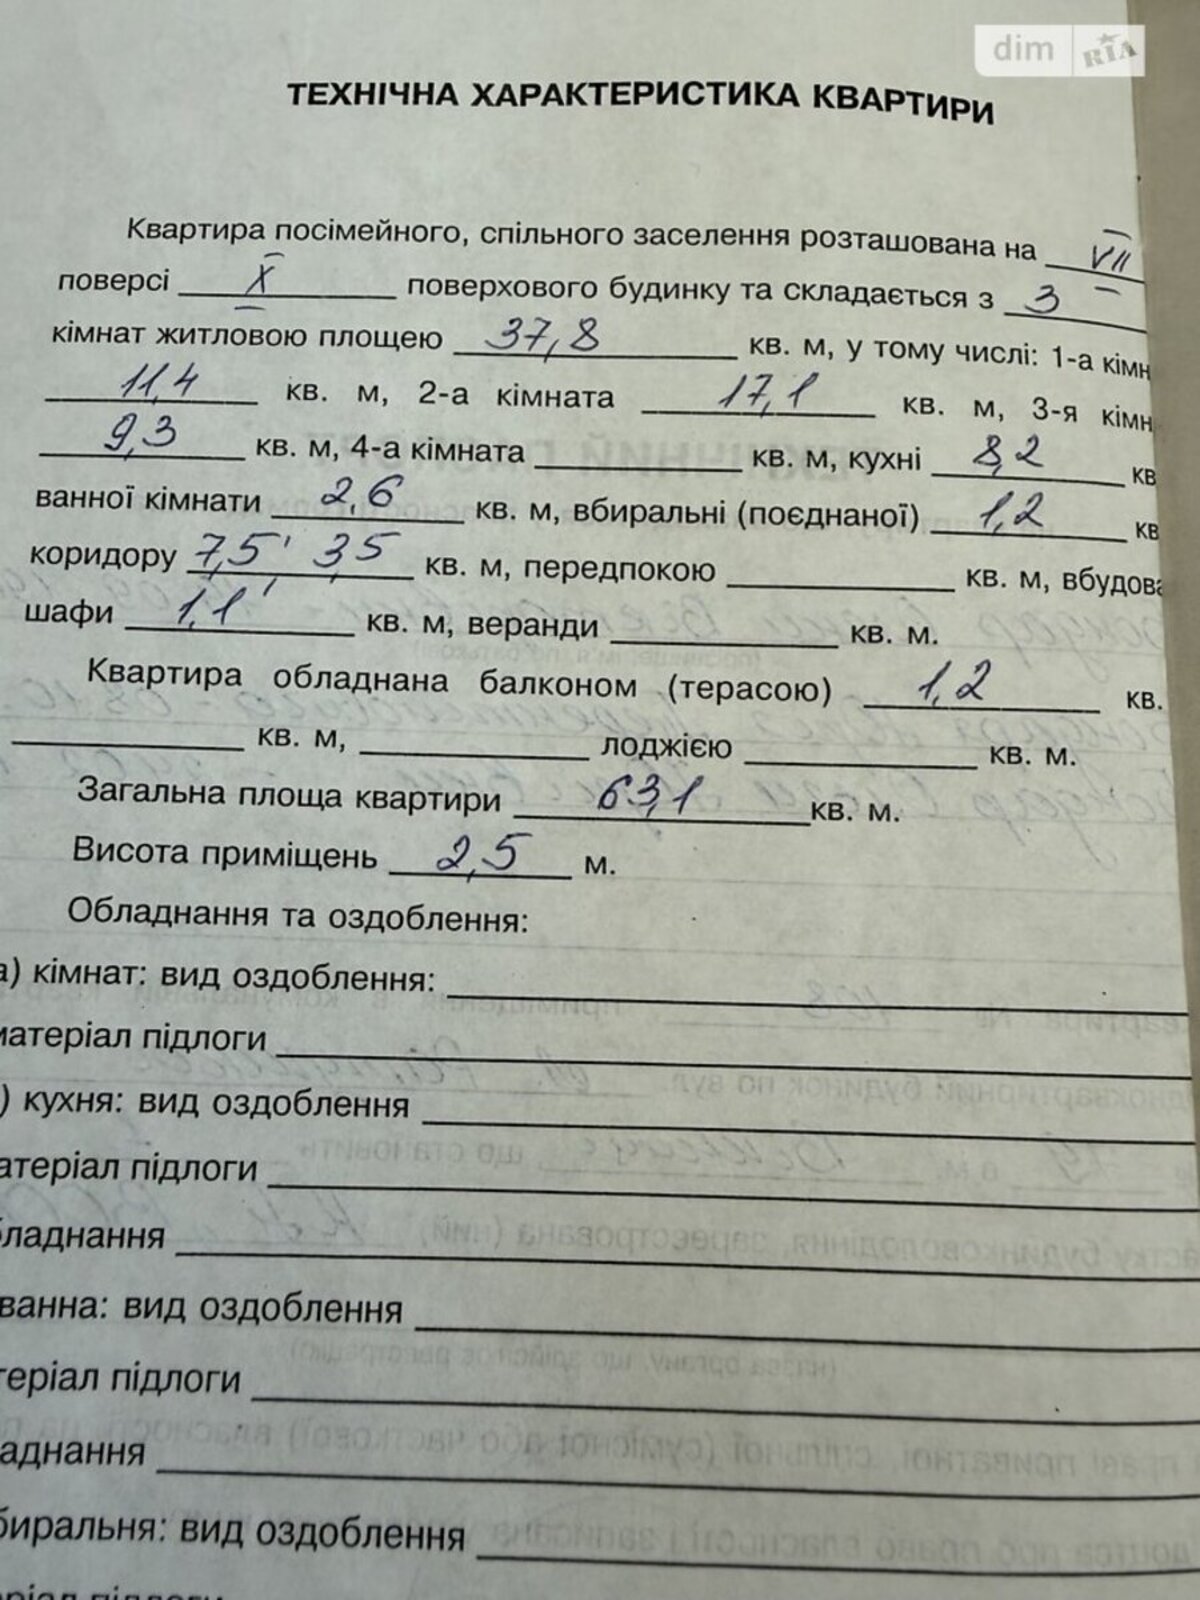 dim RIA
ТЕХНІЧНА ХАРАКТЕРИСТИКА КВАРТИРИ
Квартира посімейного, спільного заселення розташована на VII
поверсі X поверхового будинку та складається з 3
кімнат житловою площею 37,8 кв. м, у тому числі: 1-а кімн
11,4 кв. м, 2-а кімната 17,1 кв. м, 3-я кімн
9,3 кв. м, 4-а кімната кв. м, кухні 8,2 кв
ванної кімнати 2,6 кв. м, вбиральні (поєднаної) 1,2 кв
коридору 7,5; 3,5 кв. м, передпокою кв. м, вбудова
шафи 1,1 кв. м, веранди кв. м.
Квартира обладнана балконом (терасою) 1,2 кв.
кв. м, лоджією кв. м.
Загальна площа квартири 63,1 кв. м.
Висота приміщень 2,5 м.
Обладнання та оздоблення:
а) кімнат: вид оздоблення:
матеріал підлоги
) кухня: вид оздоблення
атеріал підлоги
бладнання
ванна: вид оздоблення
теріал підлоги
аднання
биральня: вид оздоблення
ріал підлоги